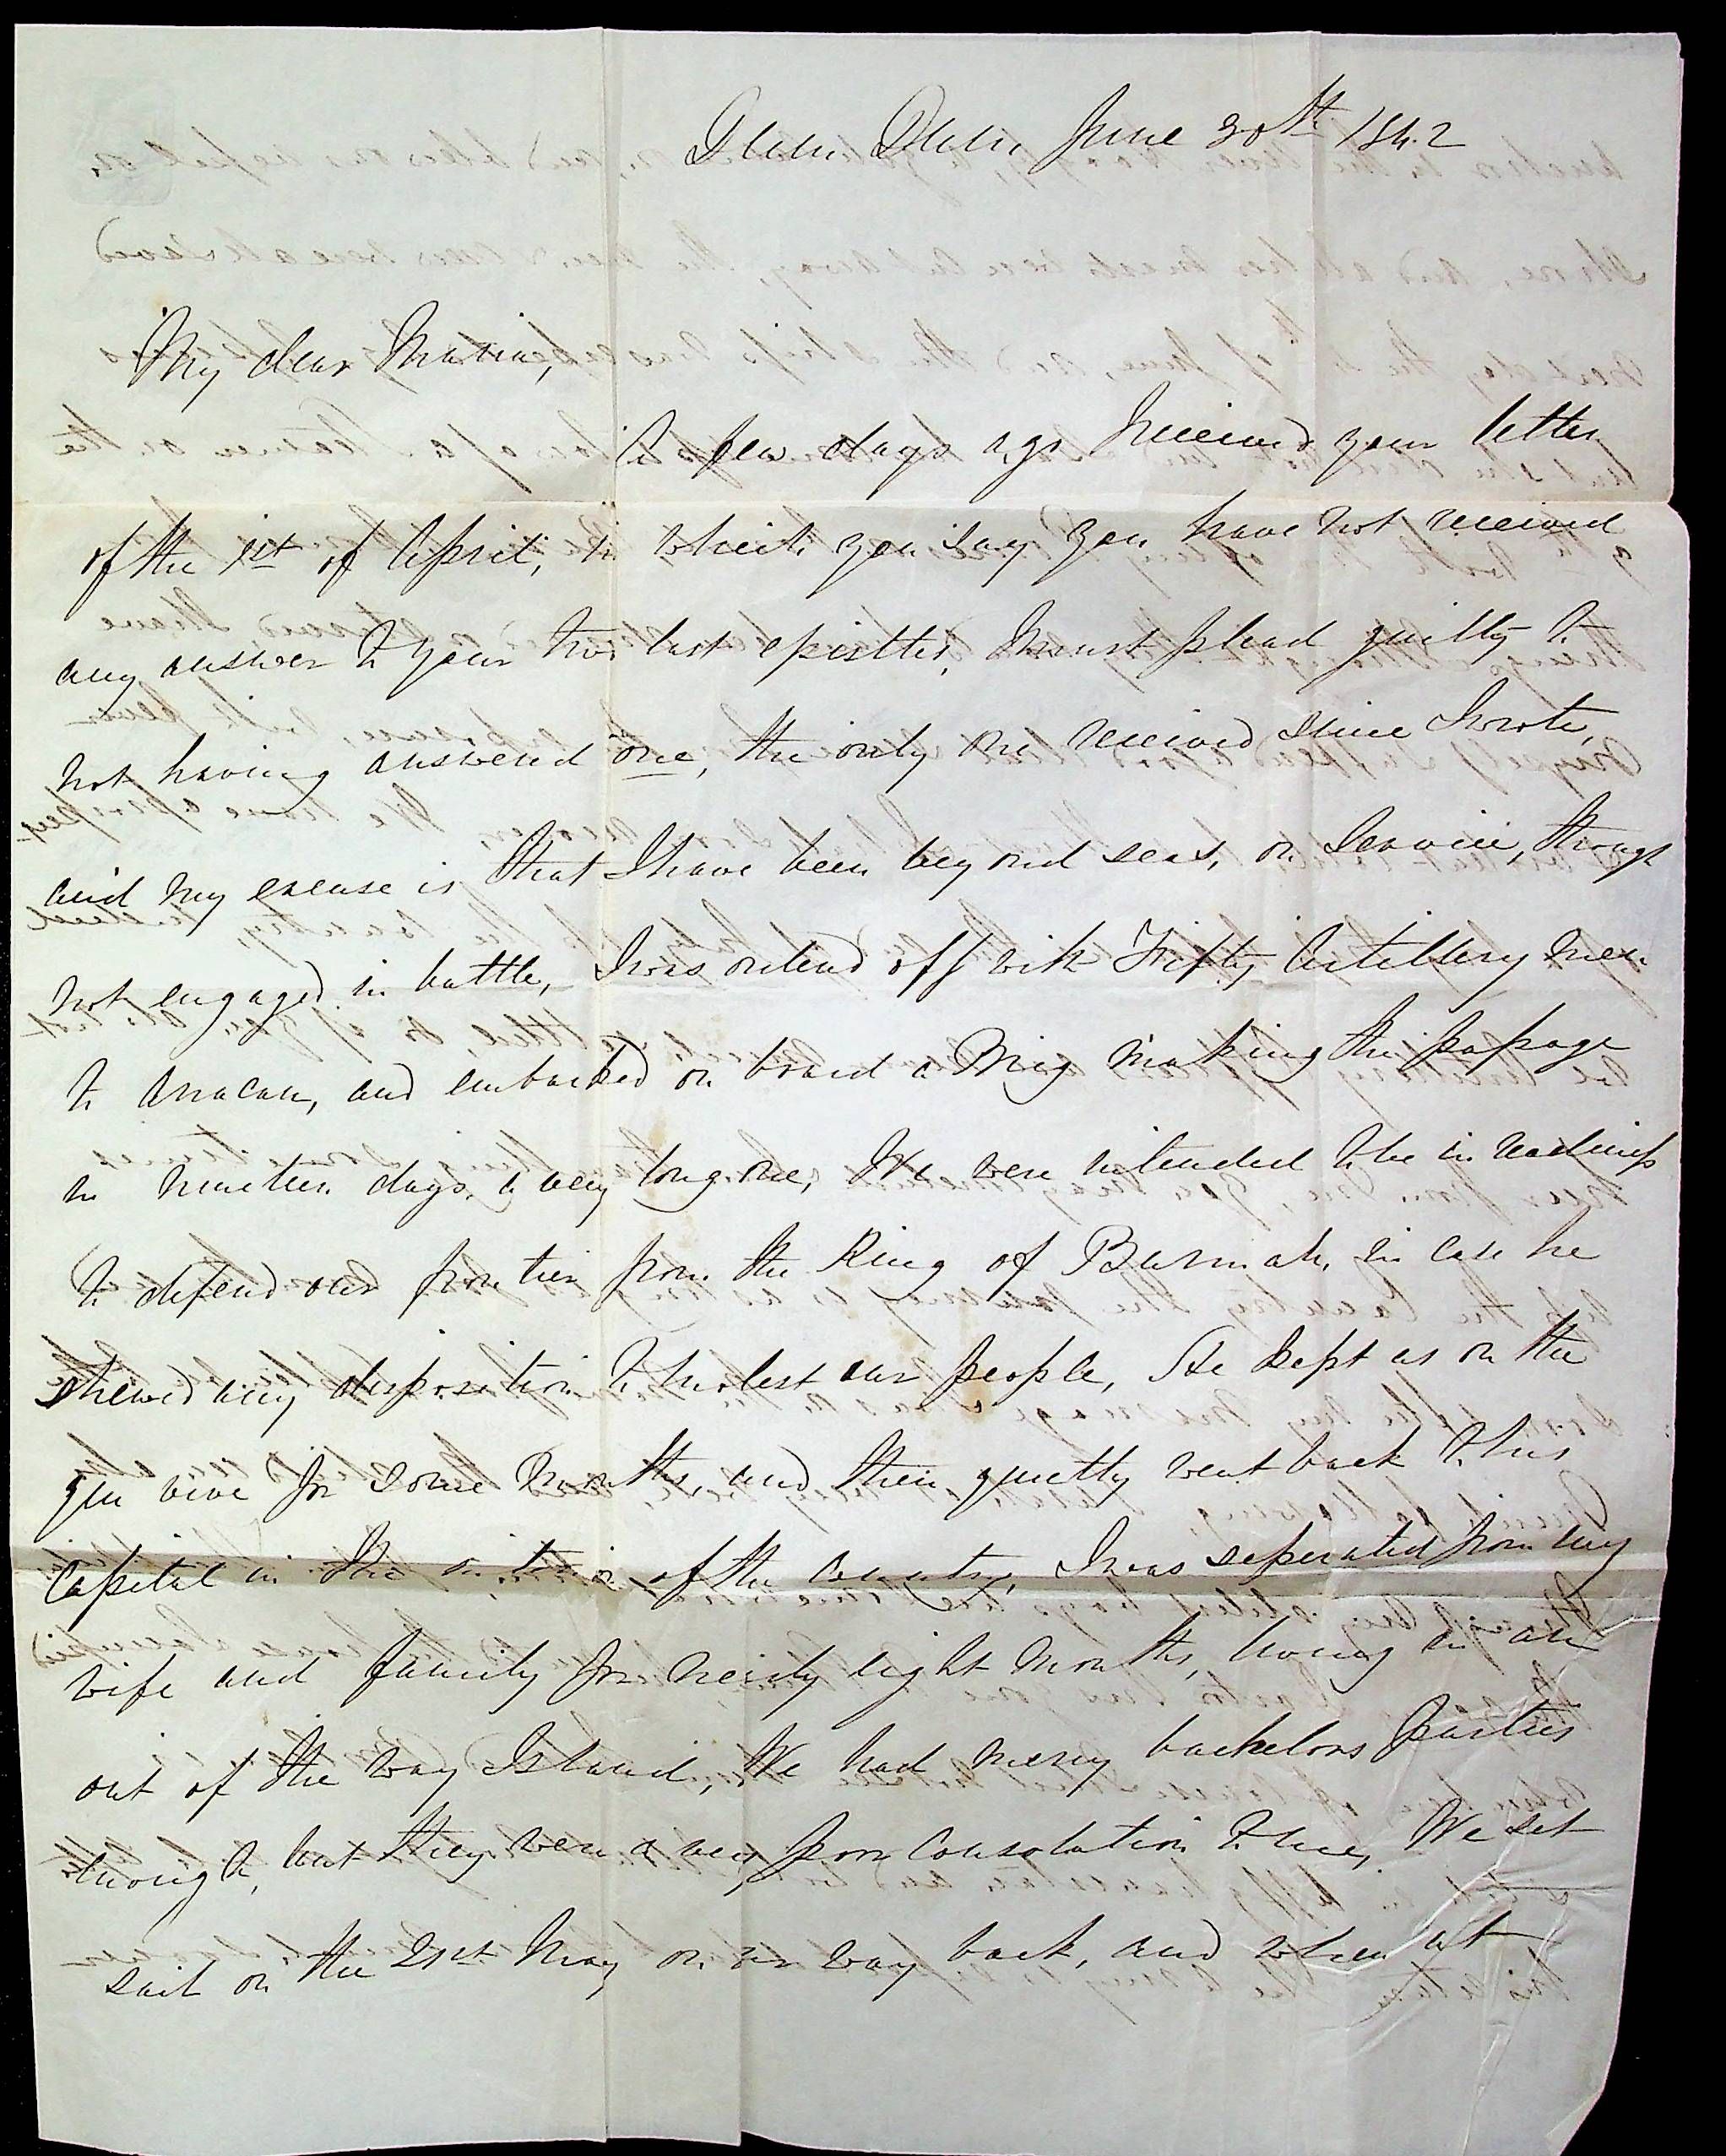 Dum Dum, June 30th 1842
My dear Maria,
A few days ago I received your letter
of the 1st of April, in which you say you have not received
any answer to your two last epistles, I must plead guilty to
not having answered one, the only one received since I wrote,
and my excuse is that I have been beyond seas, on Service, though
not engaged in battle, I was ordered off with Fifty Artillery men
to Arracan, and embarked on board a Brig making the passage
in nineteen days, a very long one, We were intended to be in readiness
to defend our frontier from the King of Burmah, in case he
shewed any disposition to molest our people, He kept us on the
qui vive for some months, and then quietly went back to his
Capital in the interior of the Country, I was seperated from my
wife and family for nearly eight months, living in an
out of the way Island, We had merry bachelors parties
though, but they were a very poor Consolation to me, We set
sail on the 21st May on our way back, and when at